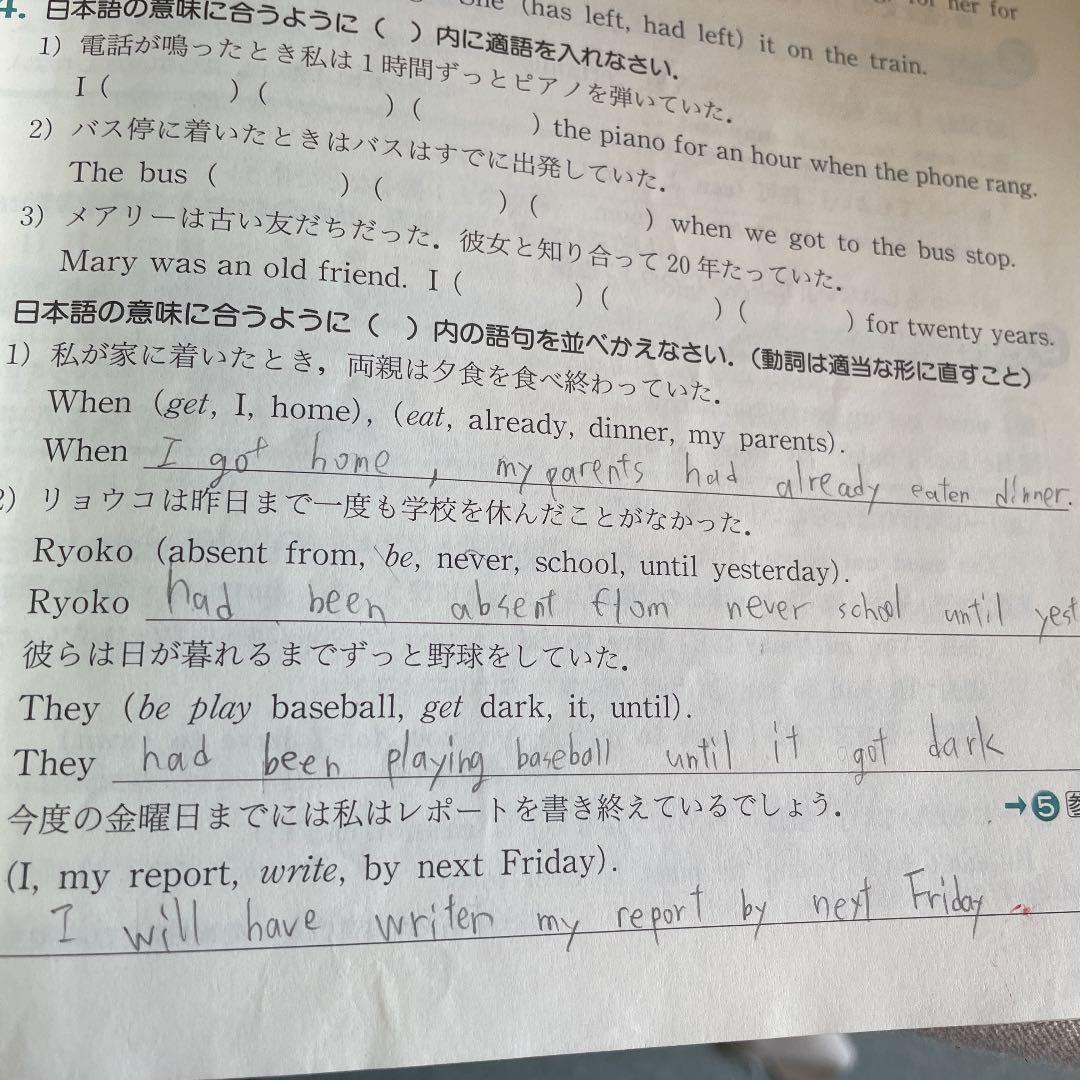 (has left, had left) it on the train.
her for
4. 日本語の意味に合うように（ ）内に適語を入れなさい．
1) 電話が鳴ったとき私は1時間ずっとピアノを弾いていた．
I ( ) ( ) ( ) the piano for an hour when the phone rang.
2) バス停に着いたときはバスはすでに出発していた．
The bus ( ) ( ) ( ) when we got to the bus stop.
3) メアリーは古い友だちだった．彼女と知り合って20年たっていた．
Mary was an old friend. I ( ) ( ) ( ) for twenty years.
日本語の意味に合うように（ ）内の語句を並べかえなさい．（動詞は適当な形に直すこと）
1) 私が家に着いたとき，両親は夕食を食べ終わっていた．
When (get, I, home), (eat, already, dinner, my parents).
When I got home , my parents had already eaten dinner.
2) リョウコは昨日まで一度も学校を休んだことがなかった．
Ryoko (absent from, be, never, school, until yesterday).
Ryoko had been absent from never school until yest
彼らは日が暮れるまでずっと野球をしていた．
They (be play baseball, get dark, it, until).
They had been playing baseball until it got dark
今度の金曜日までには私はレポートを書き終えているでしょう． →5
(I, my report, write, by next Friday).
I will have writen my report by next Friday .